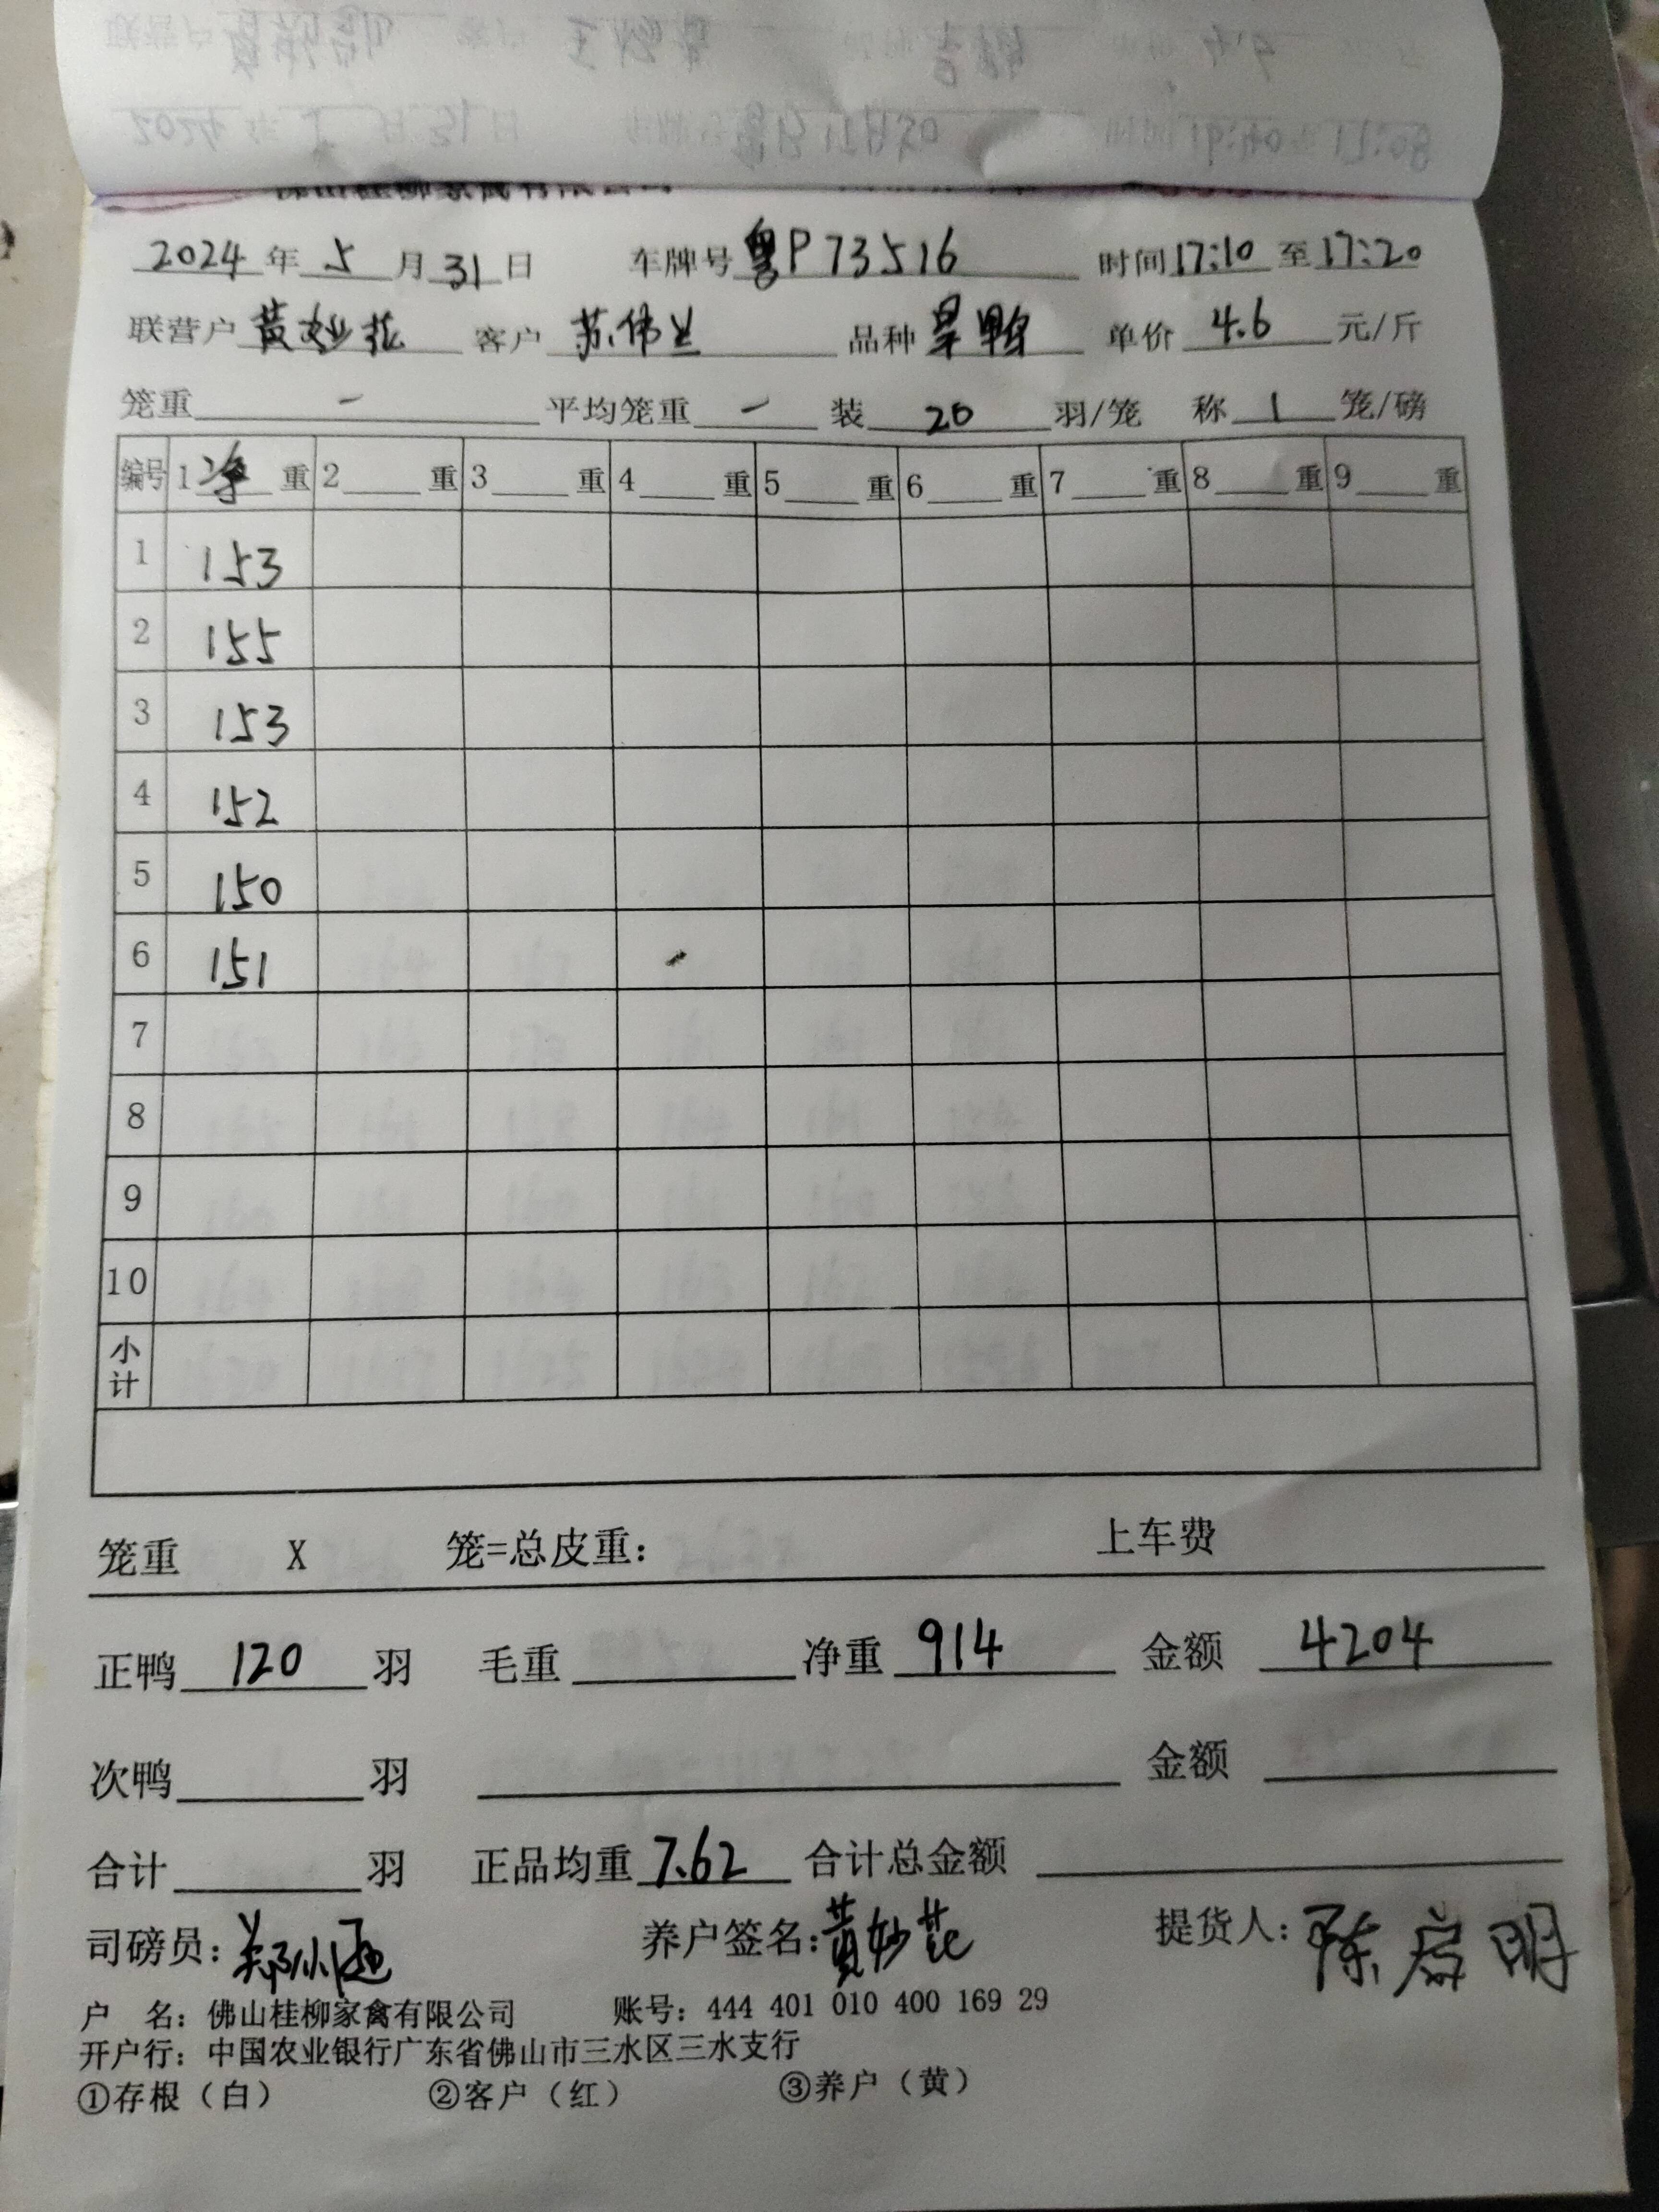 2024年5月31日 车牌号粤P73516 时间17:10至17:20
联营户黄妙花 客户苏伟兰 品种旱鸭 单价4.6元/斤
笼重 - 平均笼重 - 装20羽/笼 称1笼/磅
编号 1净重 2重 3重 4重 5重 6重 7重 8重 9重
1 153
2 155
3 153
4 152
5 150
6 151
7
8
9
10
小计
笼重 X 笼=总皮重: 上车费
正鸭120羽 毛重 净重914 金额4204
次鸭 羽 金额
合计 羽 正品均重7.62 合计总金额
司磅员: 养户签名:黄妙花 提货人:陈启明
户 名: 佛山桂柳家禽有限公司 账号: 444 401 010 400 169 29
开户行: 中国农业银行广东省佛山市三水区三水支行
①存根(白) ②客户(红) ③养户(黄)